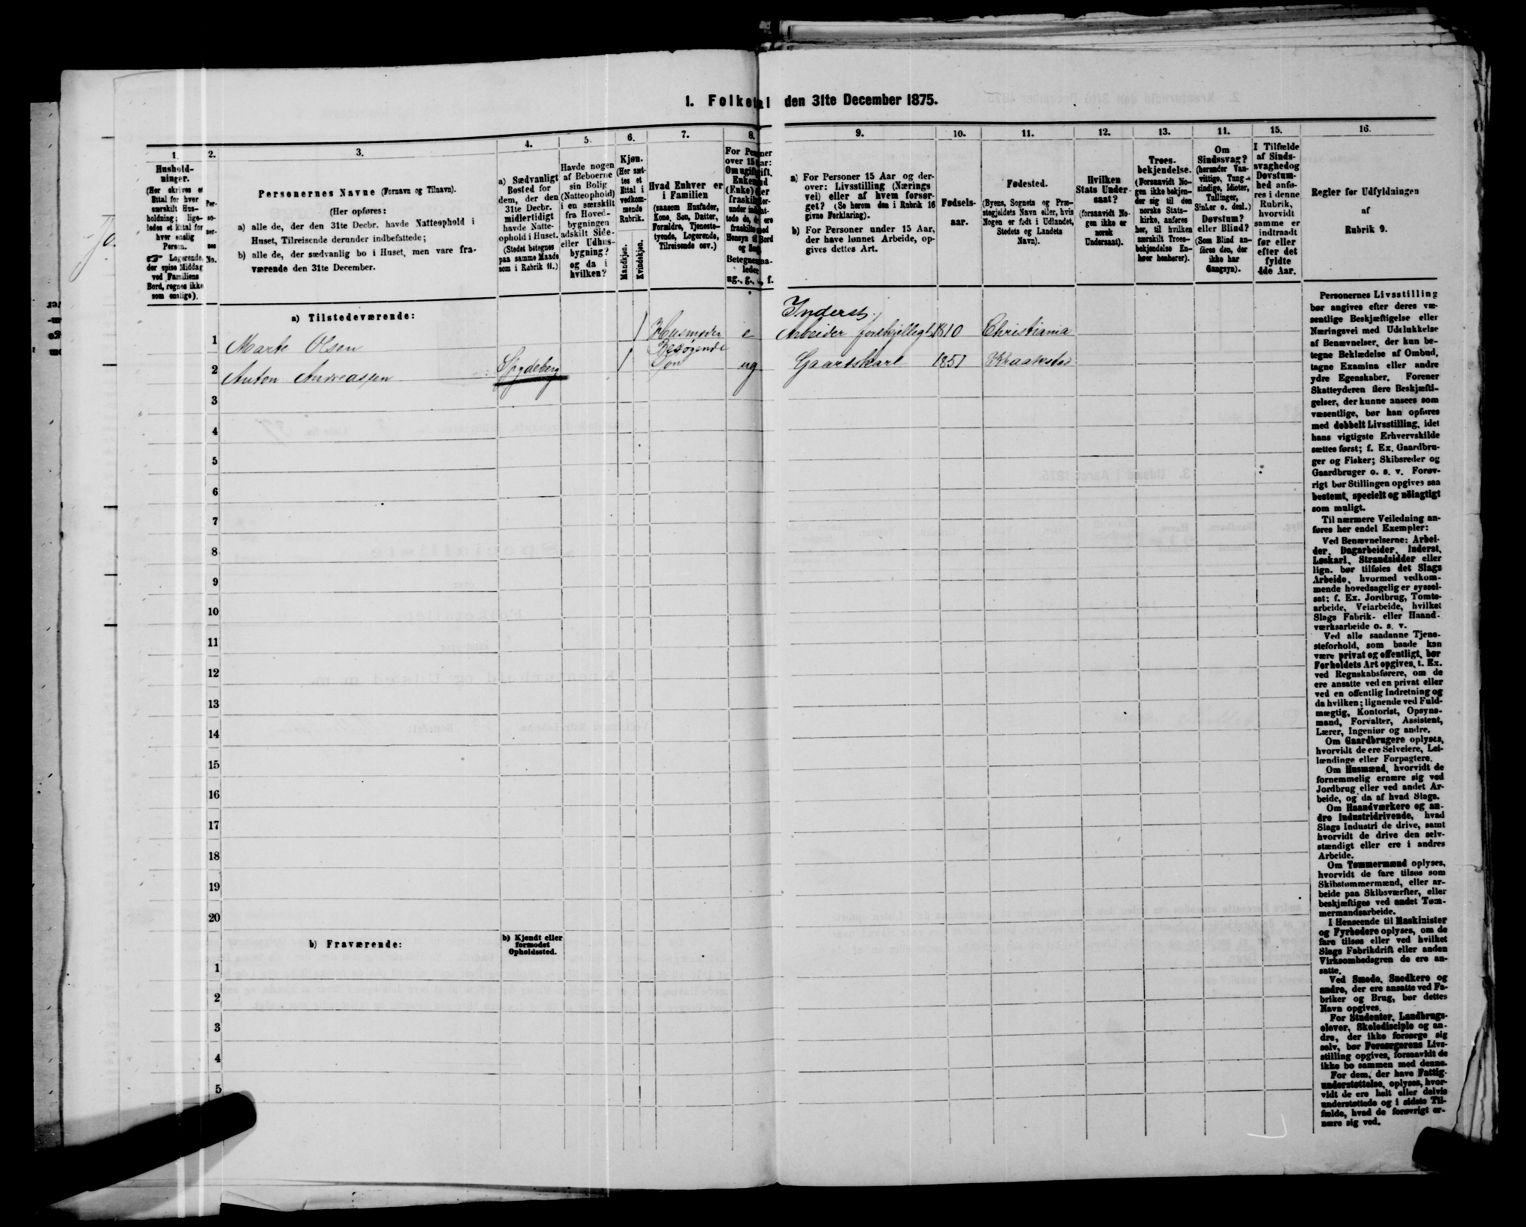 1. Folketal den 31te December 1875.
1.
Hushold-
ninger.
(Her skrives et
Ettal for hver
særskilt Hus-
holdning; lige-
ledes et Ettal for
hver enslig
Person.
Logerende,
der spise Middag
ved Familiens
Bord, regnes ikke
som enslige).
2.
Per-
so-
ner-
nes
No.
3.
Personernes Navne (Fornavn og Tilnavn).
(Her opføres:
a) alle de, der den 31te Decbr. havde Natteophold i
Huset, Tilreisende derunder indbefattede;
b) alle de, der sædvanlig bo i Huset, men vare fra-
værende den 31te December.
4.
a) Sædvanligt
Bosted for
dem, der den
31te Decbr.
midlertidigt
havde Natte-
ophold i Huset.
(Stedet betegnes
paa samme Maade
som i Rubrik 11.)
5.
Havde nogen
af Beboerne
sin Bolig
(Natteophold)
i en særskilt
fra Hoved-
bygningen
adskilt Side-
eller Udhus-
bygning?
og da i
hvilken?
6.
Kjøn.
(Her sæt-
tes et
Ettal i
vedkom-
mende
Rubrik.
Mandkjøn.
Kvindekjøn.
7.
Hvad Enhver er
i Familien
(saasom Husfader,
Kone, Søn, Datter,
Forældre, Tjeneste-
tyende, Logerende,
Tilreisende osv.)
8.
For Personer
over 15 Aar:
9.
a) For Personer 15 Aar og der-
over: Livsstilling (Nærings
vei) eller af hvem forsør-
get? (Se herom den i Rubrik 16
givne Forklaring).
b) For Personer under 15 Aar,
der have lønnet Arbeide, op-
gives dettes Art.
10.
Fødsels-
aar.
11.
Fødested.
(Byens, Sognets og Præ-
stegjeldets Navn eller, hvis
Nogen er født i Udlandet,
Stedets og Landets
Navn).
12.
Hvilken
Stats Under-
saat?
(forsaavidt No-
gen ikke er
norsk
Undersaat).
13.
Troes-
bekjendelse.
(Forsaavidt No-
gen ikke bekjen-
der sig til den
norske Stats-
kirke, anføres
her, til hvilken
særskilt Troes-
bekjendelse En-
hver henhører).
11.
Om
Sindssvag?
(herunder Van-
vittige, Tung-
sindige, Idioter,
Tullinger,
Sinker o. desl.)
Døvstum?
eller Blind?
(Som Blind an-
føres den, der
ikke har
Gangsyn).
15.
I Tilfælde
af Sinds-
svaghed og
Døvstum-
hed anfø-
res i denne
Rubrik,
hvorvidt
samme er
indtraadt
før eller
efter det
fyldte
4de Aar.
16.
Regler for Udfyldningen
af
Rubrik 9.
a) Tilstedeværende:
1 Marte Olsen 1 Husmoder e Inderst, Arbeider forskjelligt 1810 Christiania
2 Anton Andreassen Spydeberg 1 Besøgende Søn ug Gaardskarl 1851 Kraakstad
3
4
5
6
7
8
9
10
11
12
13
14
15
16
17
18
19
20
b) Fraværende:
b) Kjendt eller
formodet
Opholdssted.
1
2
3
4
5
Personernes Livsstilling
bør angives efter deres væ-
sentlige Beskjæftigelse eller
Næringsvei med Udelukkelse
af Benævnelser, der kun be-
tegne Beklædelse af Ombud,
tagne Examina eller andre
ydre Egenskaber. Forener
Skatteyderen flere Beskjæfti-
gelser, der kunne ansees som
væsentlige, bør han opføres
med dobbelt Livsstilling, idet
hans vigtigste Erhvervskilde
sættes først; f. Ex. Gaardbru-
ger og Fisker; Skibsreder og
Gaardbruger o. s. v. Forøv-
rigt bør Stillingen opgives saa
bestemt, specielt og nöiagtigt
som muligt.
Til nærmere Veiledning an-
føres her endel Exempler:
Ved Benævnelserne: Arbei-
der, Dagarbeider, Inderst,
Løskarl, Strandsidder eller
lign. bør tilføies det Slags
Arbeide, hvormed vedkom-
mende hovedsagelig er syssel-
sat; f. Ex. Jordbrug, Tomte-
arbeide, Veiarbeide, hvilket
Slags Fabrik- eller Haand-
værksarbeide o. s. v.
Ved alle saadanne Tjene-
steforhold, som baade kan
være privat og offentligt, bør
Forholdets Art opgives, t. Ex.
ved Regnskabsførere, om de
ere ansatte ved en privat eller
ved en offentlig Indretning og
da hvilken; lignende ved Fuld-
mægtig, Kontorist, Opsyns-
mand, Forvalter, Assistent,
Lærer, Ingeniør og andre.
Om Gaardbrugere oplyses,
hvorvidt de ere Selveiere, Lei-
lændinge eller Forpagtere.
Om Husmænd, hvorvidt de
fornemmelig ernære sig ved
Jordbrug eller ved andet Ar-
beide, og da af hvad Slags.
Om Haandværkere og an-
dre Industridrivende, hvad
Slags Industri de drive, samt
hvorvidt de drive den selv-
stændigt eller ere i andres
Arbeide.
Om Tømmermænd oplyses,
hvorvidt de fare tilsøs som
Skibstømmermænd, eller ar-
beide paa Skibsværfter, eller
beskjæftiges ved andet Tøm-
mermandsarbeide.
I Henseende til Maskinister
og Fyrbødere oplyses, om de
fare tilsøs eller ved hvilket
Slags Fabrikdrift eller anden
Virksomhedsgren de ere an-
satte.
Ved Smede, Snedkere og
andre, der ere ansatte ved Fa-
briker og Brug, bør dettes
Navn opgives.
For Studenter, Landbrugs-
elever, Skoledisciple og an-
dre, der ikke forsørge sig
selv, bør Forsørgerens Livs-
stilling opgives, forsaavidt de
ikke bo sammen med denne.
For dem, der have Fattig-
understøttelse, oplyses, hvor-
vidt de ere helt eller delvis
understøttede og i sidste Til-
fælde, hvad de forøvrigt er-
nære sig ved.